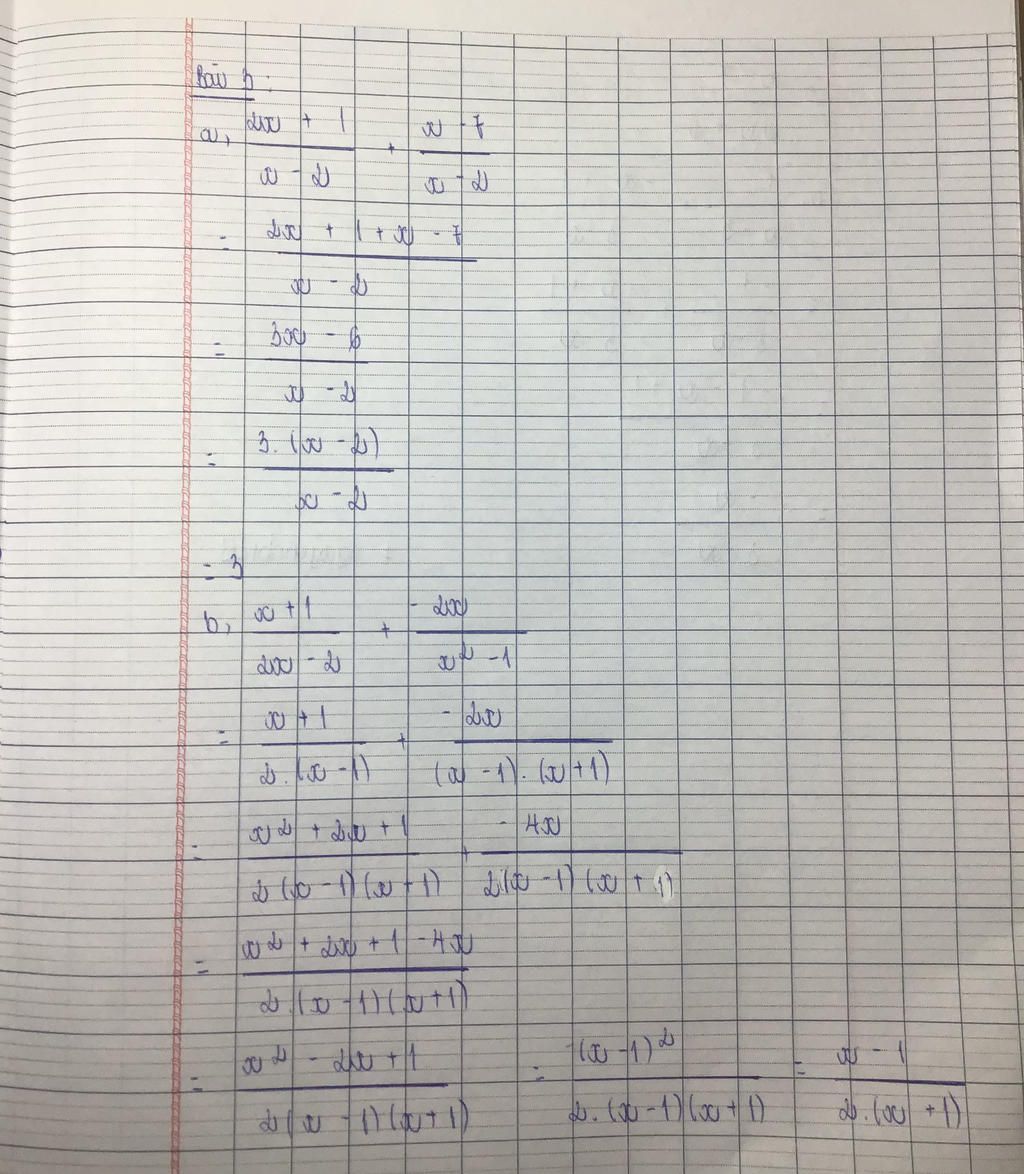 Bài 3:
a, (2x + 1)/(x - 2) + (x - 7)/(x - 2)
= (2x + 1 + x - 7)/(x - 2)
= (3x - 6)/(x - 2)
= (3.(x - 2))/(x - 2)
= 3
b, (x + 1)/(2x - 2) + (-2x)/(x² - 1)
= (x + 1)/(2.(x - 1)) + (-2x)/((x - 1).(x + 1))
= (x² + 2x + 1)/(2(x - 1)(x + 1)) + (-4x)/(2(x - 1)(x + 1))
= (x² + 2x + 1 - 4x)/(2(x - 1)(x + 1))
= (x² - 2x + 1)/(2(x - 1)(x + 1)) = (x - 1)²/(2.(x - 1)(x + 1)) = (x - 1)/(2.(x + 1))